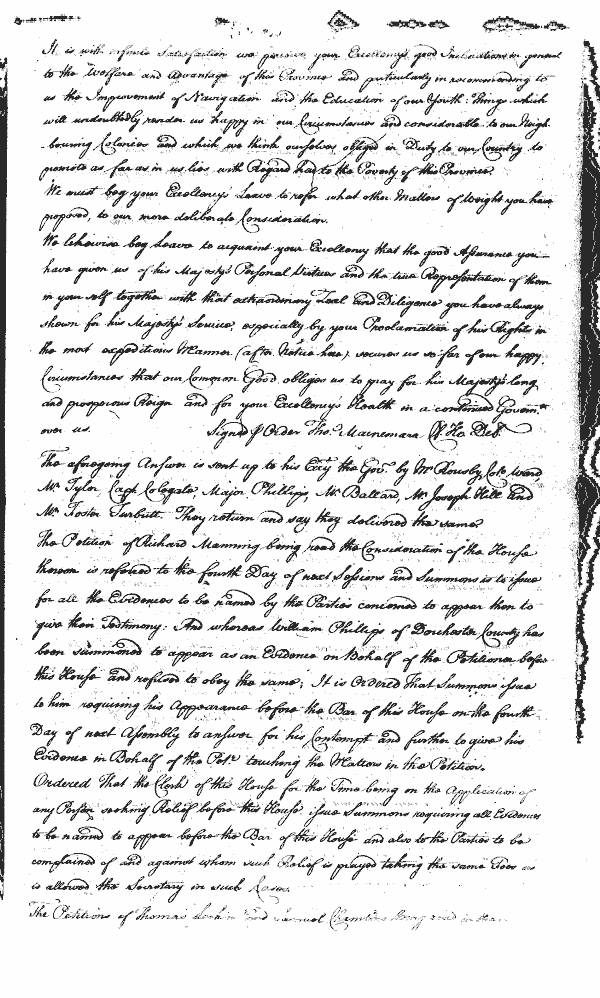 It is with infinite Satisfaction we perceive your Excellency's good Inclinations in general
to the Welfare and Advantage of this Province and particularly in recommending to
us the Improvement of Navigation and the Education of our Youth: Things which
will undoubtedly render us happy in our Circumstances and considerable to our Neigh-
-bouring Colonies and which we think ourselves obliged in Duty to our Country to
promote as far as in us lies with Regard had to the Poverty of this Province.
We must beg your Excellency's Leave to refer what other Matters of Weight you have
proposed, to our more deliberate Consideration.
We likewise beg Leave to acquaint your Excellency that the good Assurance you
have given us of his Majesty's Personal Virtues and the true Representation of them
in your self together with that extraordinary Zeal and Diligence you have always
shewn for his Majesty's Service, especially by your Proclamation of his Rights in
the most expeditious Manner (after Notice had) secures us so far of our happy
Circumstances that our Common Good obliges us to pray for his Majesty's long
and prosperous Reign and for your Excellency's Health in a continued Governmt
over us. Signed p Order Thos. Macnemara Cl. Ho. Del.
The aforegoing Answer is sent up to his Excy the Govr. by Mr Rousby, Col. Ward,
Mr. Tyler, Capt Colegate, Major Phillips, Mr. Ballard, Mr Joseph Hill and
Mr. Foster Turbutt. They return and say they delivered the same.
The Petition of Richard Manning being read the Consideration of the House
thereon is referred to the fourth Day of next Sessions and Summons is to issue
for all the Evidences to be named by the Parties concerned to appear then to
give their Testimony: And whereas William Phillips of Dorchester County has
been summoned to appear as an Evidence on Behalf of the Petitioner before
this House and refused to obey the same; It is Ordered That Summons issue
to him requiring his Appearance before the Bar of this House on the fourth
Day of next Assembly to answer for his Contempt and further to give his
Evidence in Behalf of the Petr. touching the Matters in the Petition.
Ordered That the Clerk of this House for the Time being on the Application of
any Person seeking Relief before this House issue Summons requiring all Evidences
to be named to appear before the Bar of this House and also to the Parties to be
complained of and against whom such Relief is prayed taking the same Fees as
is allowed the Secretary in such Cases.
The Petitions of Thomas and Samuel Chamberl being read in the